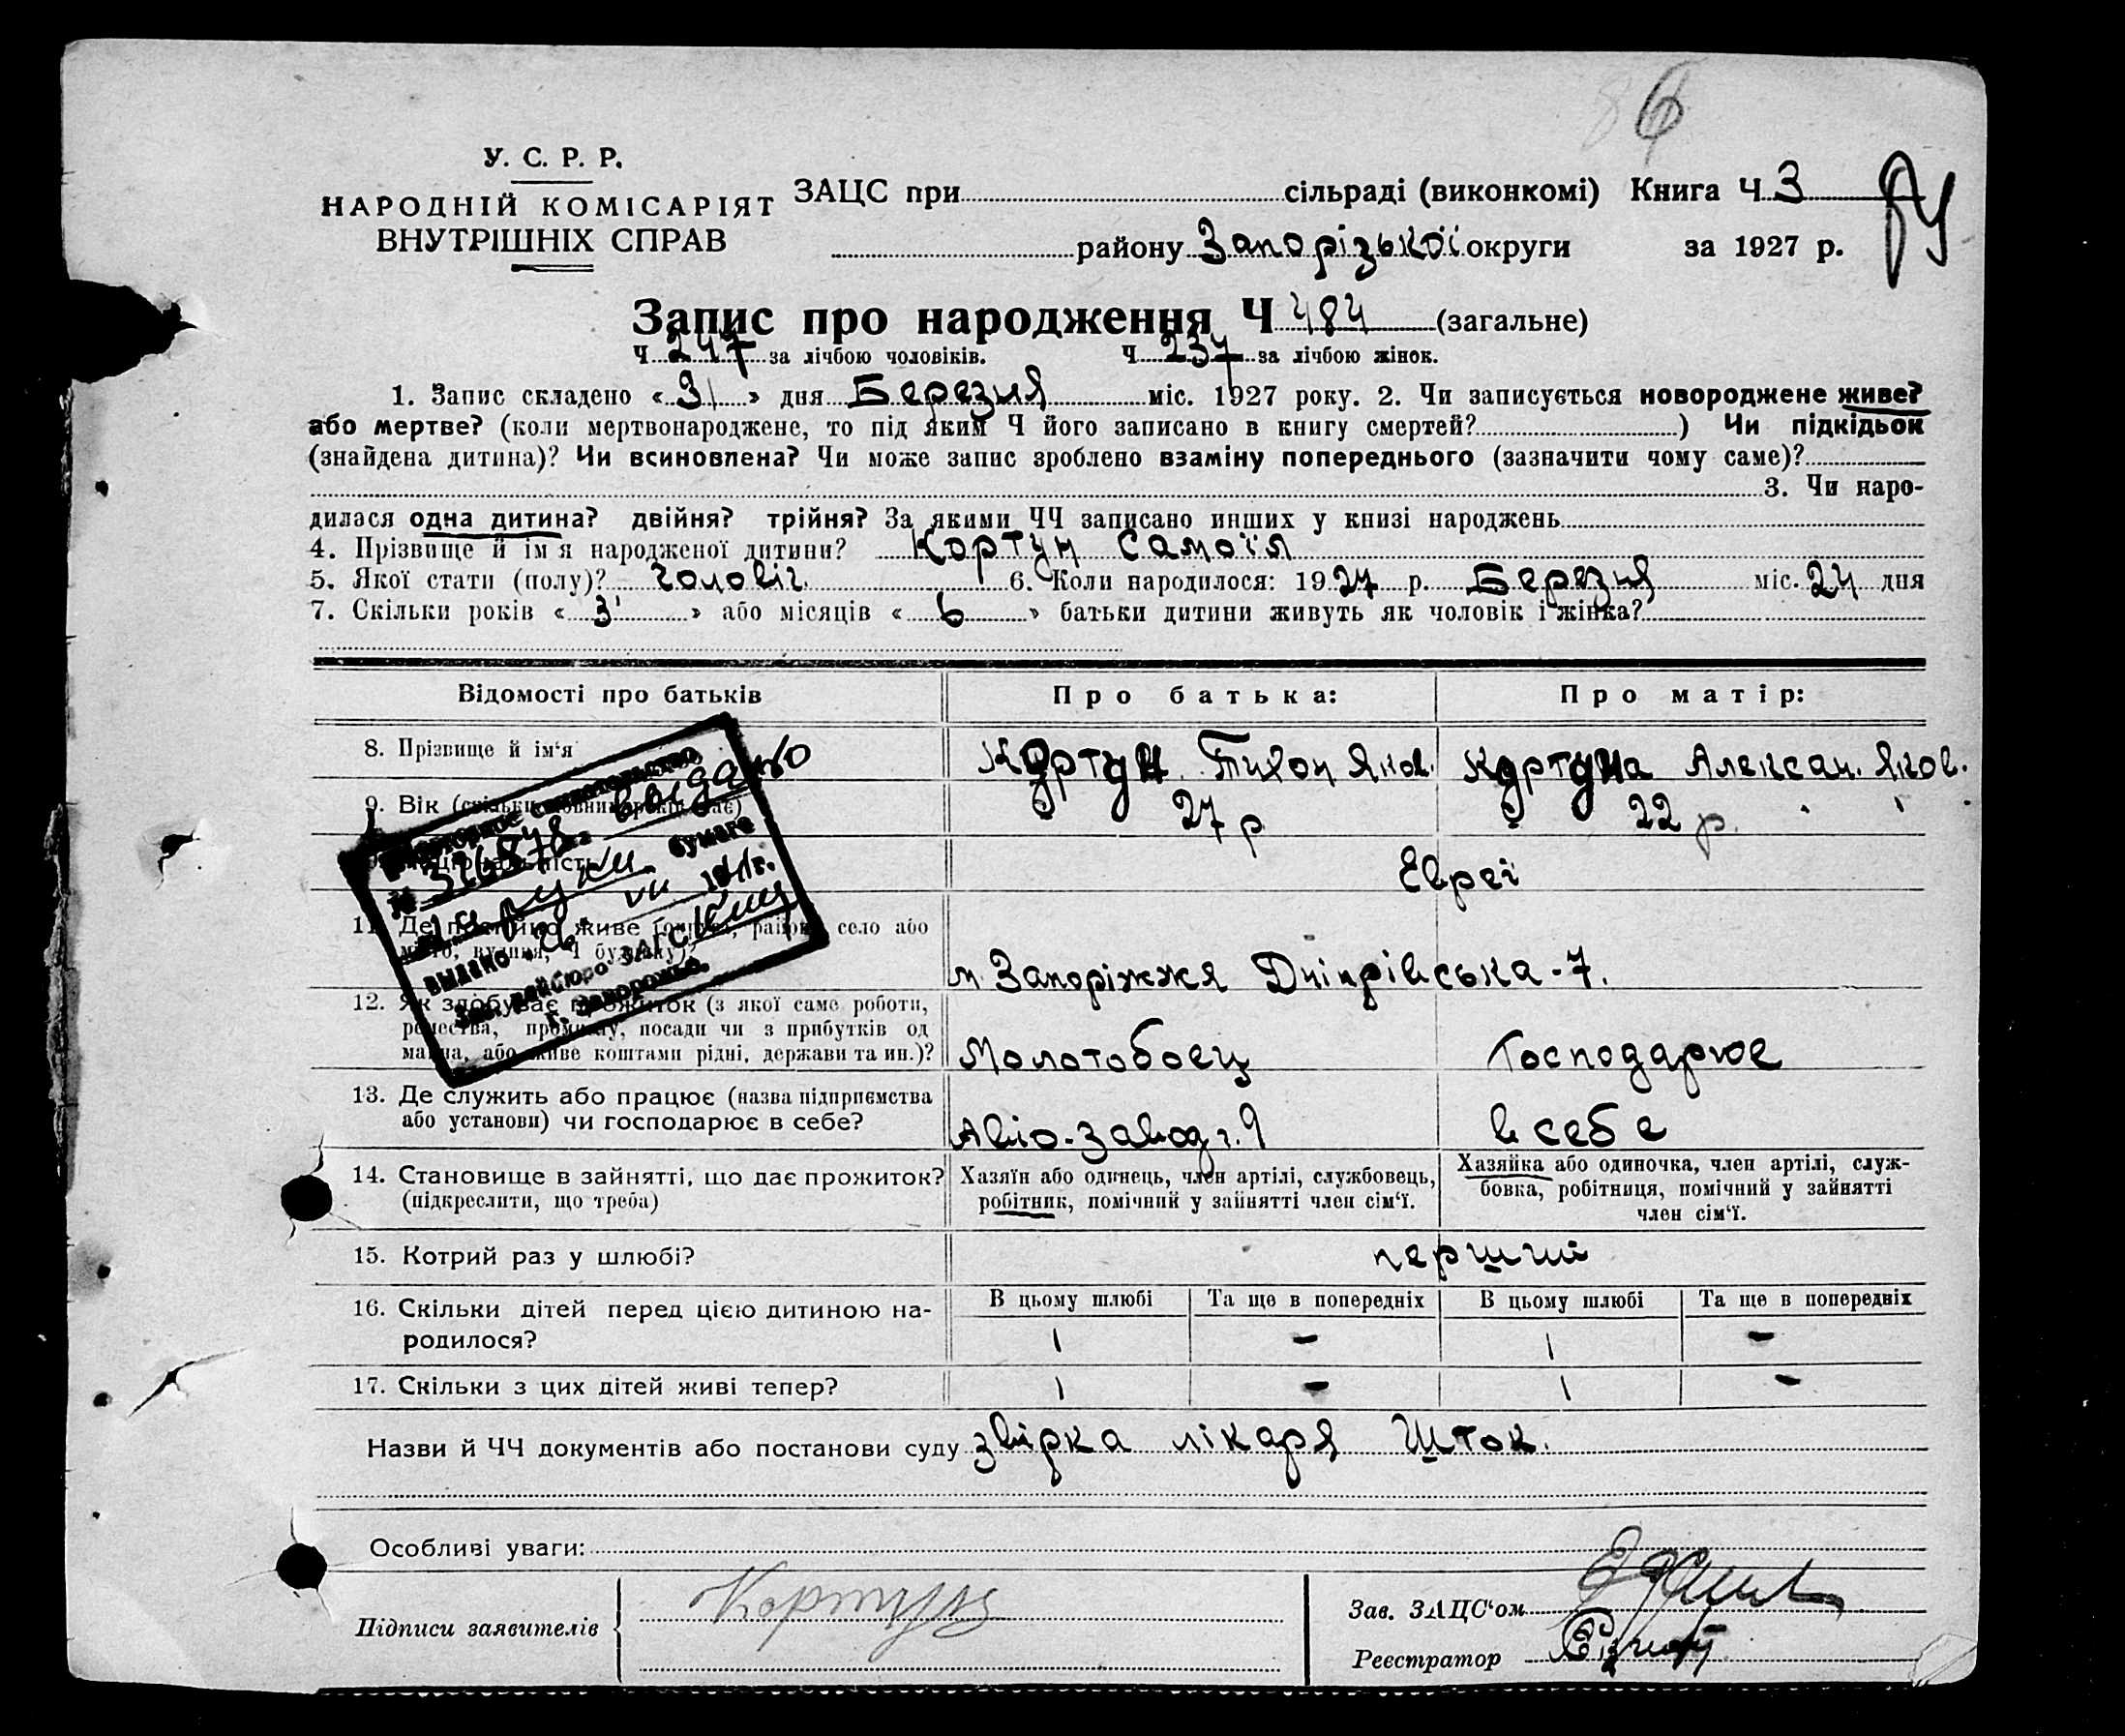 6
У. С. Р. Р.
НАРОДНІЙ КОМІСАРІЯТ
ВНУТРІШНІХ СПРАВ
ЗАЦС при сільраді (виконкомі) Книга Ч 3
району Запорізької округи за 1927 р.
Запис про народження Ч 484 (загальне)
Ч 247 за лічбою чоловіків. Ч 237 за лічбою жінок.
1. Запис складено « 31 » дня Березня міс. 1927 року. 2. Чи записується новороджене живе?
або мертве? (коли мертвонароджене, то під яким Ч його записано в книгу смертей? ) Чи підкідьок
(знайдена дитина)? Чи всиновлена? Чи може запис зроблено взаміну попереднього (зазначити чому саме)?
3. Чи наро-
дилася одна дитина? двійня? трійня? За якими ЧЧ записано инших у книзі народжень
4. Прізвище й ім'я народженої дитини? Кортун Самоїл
5. Якої стати (полу)? Чоловіч. 6. Коли народилося: 1927 р. Березня міс. 24 дня
7. Скільки років « 3 » або місяців « 6 » батьки дитини живуть як чоловік і жінка?
Відомості про батьків Про батька: Про матір:
8. Прізвище й ім'я Кортун Тихон Яков. Кортуна Алексан. Яков.
9. Вік 27 р 22 р.
Евреї
11. Де живе село або
м. Запоріжжя Дніпрівська-7.
12. Як здобуває прожиток (з якої саме роботи,
ремества, промислу, посади чи з прибутків од
майна, або живе коштами рідні, держави та ин.)? Молотобоец Господарює
13. Де служить або працює (назва підприємства
або установи) чи господарює в себе? Авіо-завод ч. 9 в себе
14. Становище в зайнятті, що дає прожиток?
(підкреслити, що треба)
Хазяїн або одинець, член артілі, службовець,
робітник, помічний у зайнятті член сім'ї.
Хазяйка або одиночка, член артілі, служ-
бовка, робітниця, помічний у зайнятті
член сім'ї.
15. Котрий раз у шлюбі? перший
16. Скільки дітей перед цією дитиною на-
родилося?
В цьому шлюбі Та ще в попередніх В цьому шлюбі Та ще в попередніх
1 - 1 -
17. Скільки з цих дітей живі тепер? 1 - 1 -
Назви й ЧЧ документів або постанови суду звірка лікаря Шток.
Особливі уваги:
Підписи заявителів Кортун
Зав. ЗАЦС'ом
Реєстратор
выдано
бумаге
райбюро ЗАГС
г. Запорожье.